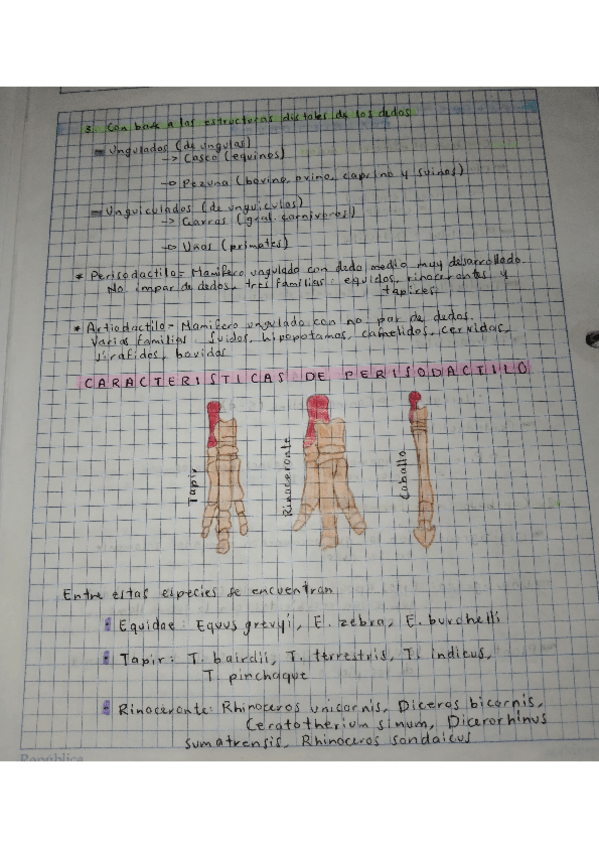 3. Con base a las estructuras distales de los dedos
Ungulados (de ungulas)
-> Casco (equinos)
-> Pezuna (bovino, ovino, caprino y suinos)
Unguiculados (de unguiculas)
-> Garras (gral. carnivoros)
-> Unas (primates)
* Perisodactilo = Mamifero ungulado con dedo medio muy desarrollado
No impar de dedos, tres familias: equidos, rinocerontes y
tapices.
* Artiodactilo - Mamifero ungulado con no. par de dedos.
Varias familias: suidos, hipopotamos, camelidos, cervidas,
jirafidos, bovidos
CARACTERISTICAS DE PERISODACTILO
Tapir
Rinoceronte
Caballo
Entre estas especies se encuentran
Equidae: Equus grevyi, E. zebra, E. burchelli
Tapir: T. bairdii, T. terrestris, T. indicus,
T. pinchaque
Rinoceronte: Rhinoceros unicornis, Diceros bicornis,
Ceratotherium simum, Dicerorhinus
sumatrensis, Rhinoceros sondaicus
República